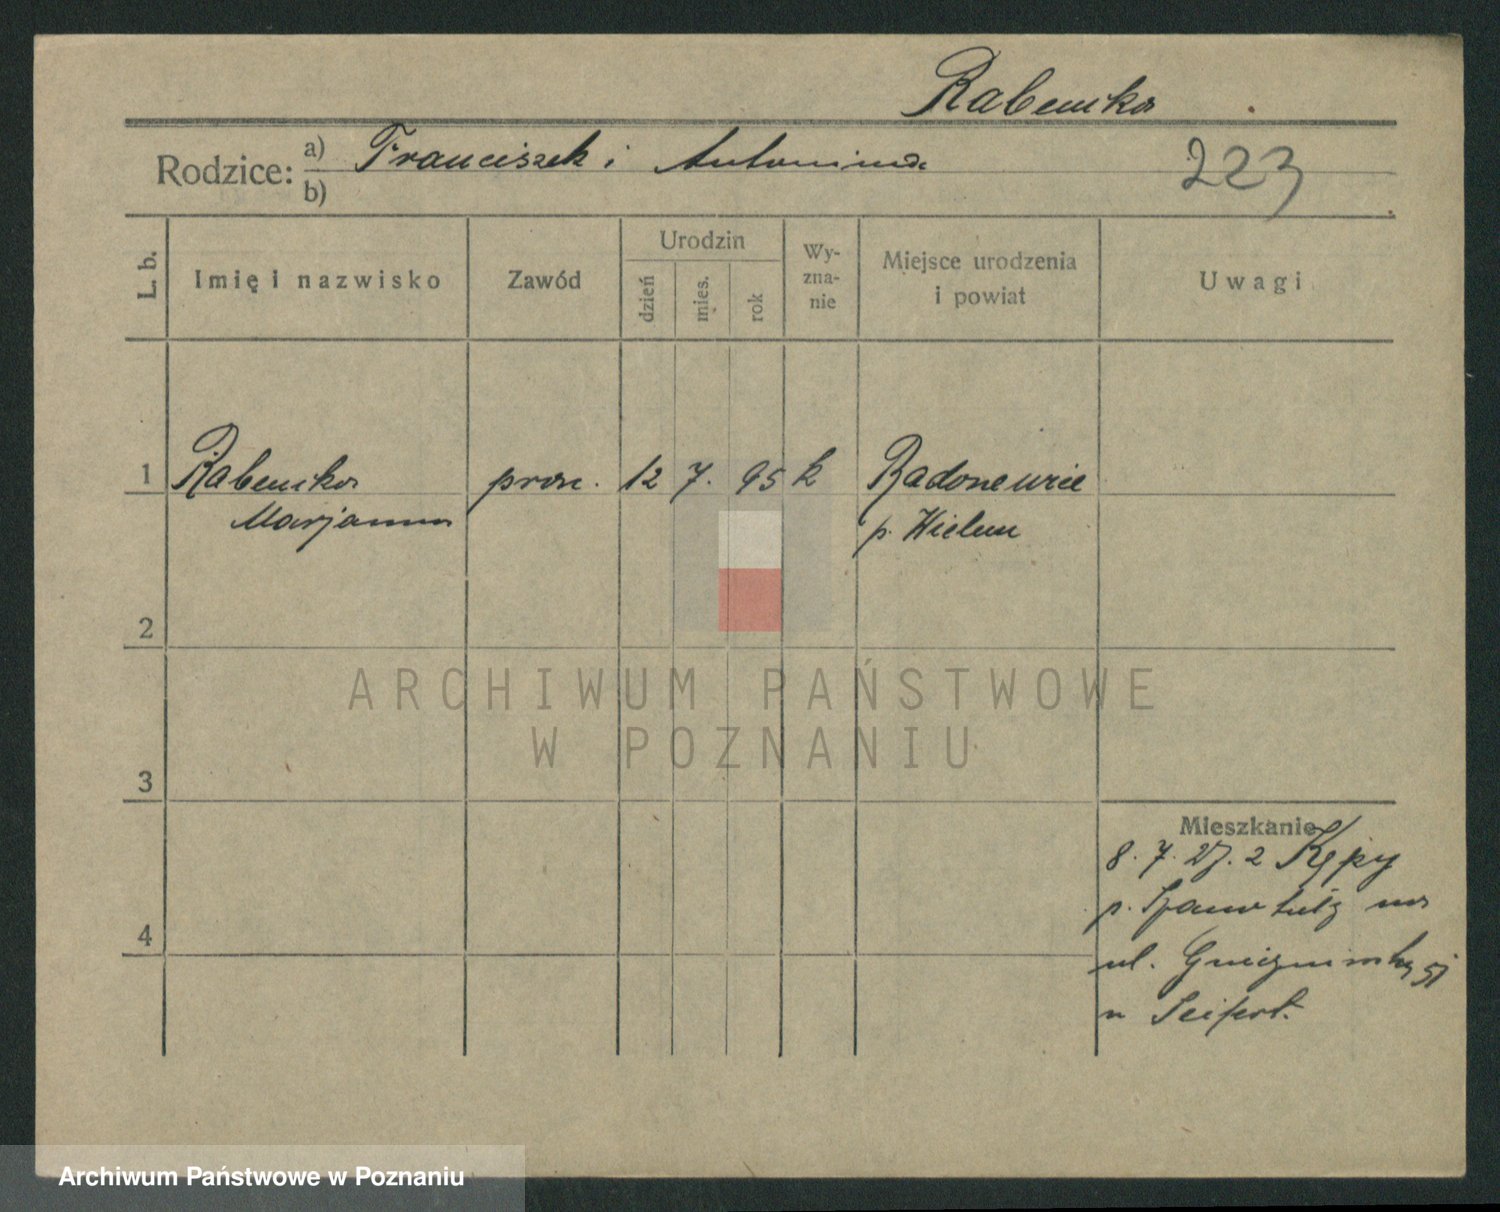 Rabenka
Rodzice: a) Franciszek i Antonina
b)
223
L. b.
Imię i nazwisko
Zawód
Urodzin
dzień
mies.
rok
Wy-
zna-
nie
Miejsce urodzenia
i powiat
Uwagi
1 Rabenka prac. 12 7. 95 k Radonewice
Marjanna p. Wielun
2
ARCHIWUM PAŃSTWOWE
W POZNANIU
3
Mieszkanie
8. 7. 27. z Kępy
p. na
4
ul. Gniezninska 51
u Seifert.
Archiwum Państwowe w Poznaniu